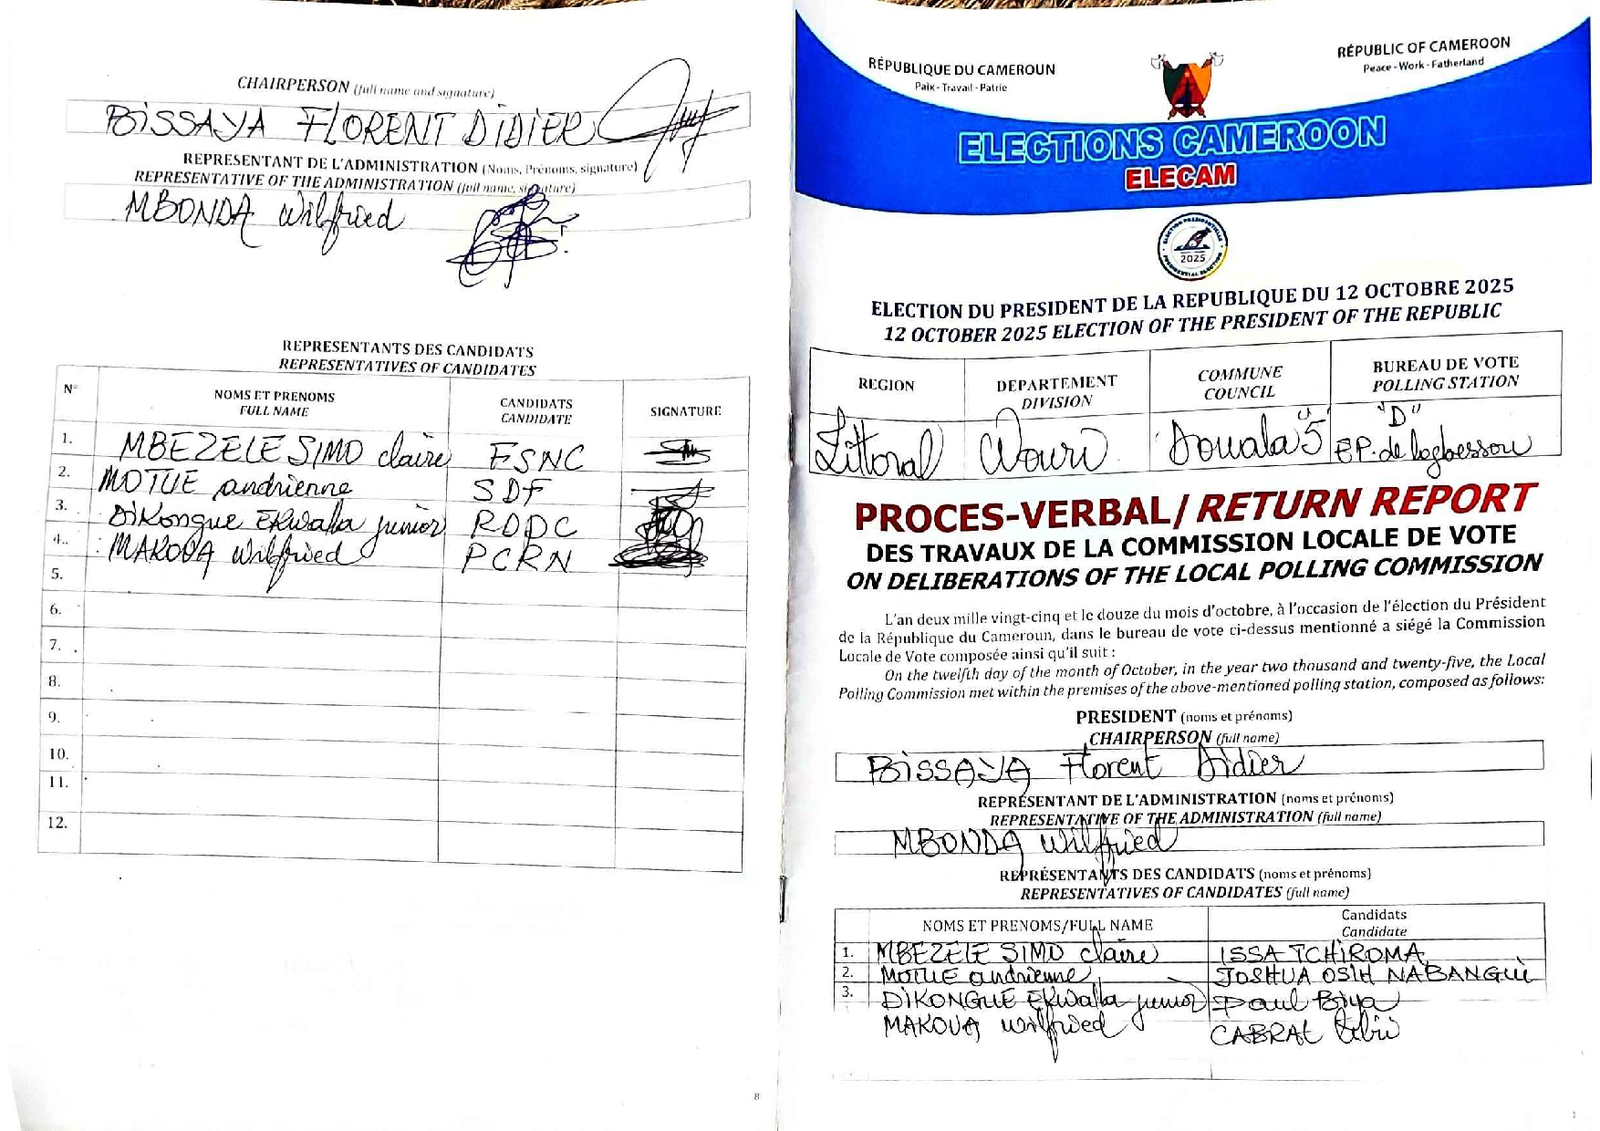 CHAIRPERSON (full name and signature)
BISSAYA FLORENT DIDIER
REPRESENTANT DE L'ADMINISTRATION (Noms, Prénoms, signature)
REPRESENTATIVE OF THE ADMINISTRATION (full name, signature)
MBONDA Wilfried
REPRESENTANTS DES CANDIDATS
REPRESENTATIVES OF CANDIDATES
N° NOMS ET PRENOMS FULL NAME CANDIDATS CANDIDATE SIGNATURE
1. MBEZELE SIMO claire FSNC
2. MOTUE andrienne SDF
3. DiKongue EKwalla junior RDPC
4. MAKOUA Wilfried PCRN
5.
6.
7.
8.
9.
10.
11.
12.
8
RÉPUBLIQUE DU CAMEROUN
Paix - Travail - Patrie
RÉPUBLIC OF CAMEROON
Peace - Work - Fatherland
ELECTIONS CAMEROON
ELECAM
ELECTION PRESIDENTIELLE
2025
PRESIDENTIAL ELECTION
ELECTION DU PRESIDENT DE LA REPUBLIQUE DU 12 OCTOBRE 2025
12 OCTOBER 2025 ELECTION OF THE PRESIDENT OF THE REPUBLIC
REGION DEPARTEMENT DIVISION COMMUNE COUNCIL BUREAU DE VOTE POLLING STATION
Littoral Wouri Douala 5 "D" EP. de logbessou
PROCES-VERBAL/ RETURN REPORT
DES TRAVAUX DE LA COMMISSION LOCALE DE VOTE
ON DELIBERATIONS OF THE LOCAL POLLING COMMISSION
L'an deux mille vingt-cinq et le douze du mois d'octobre, à l'occasion de l'élection du Président
de la République du Cameroun, dans le bureau de vote ci-dessus mentionné a siégé la Commission
Locale de Vote composée ainsi qu'il suit :
On the twelfth day of the month of October, in the year two thousand and twenty-five, the Local
Polling Commission met within the premises of the above-mentioned polling station, composed as follows:
PRESIDENT (noms et prénoms)
CHAIRPERSON (full name)
BISSAYA Florent Didier
REPRÉSENTANT DE L'ADMINISTRATION (noms et prénoms)
REPRESENTATIVE OF THE ADMINISTRATION (full name)
MBONDA Wilfried
REPRÉSENTANTS DES CANDIDATS (noms et prénoms)
REPRESENTATIVES OF CANDIDATES (full name)
NOMS ET PRENOMS/FULL NAME Candidats Candidate
1. MBEZELE SIMO claire ISSA TCHIROMA
2. MOTUE andrienne JOSHUA OSIH NABANGUI
3. DIKONGUE EKwalla junior Paul Biya
MAKOUA Wilfried CABRAL Libii
1